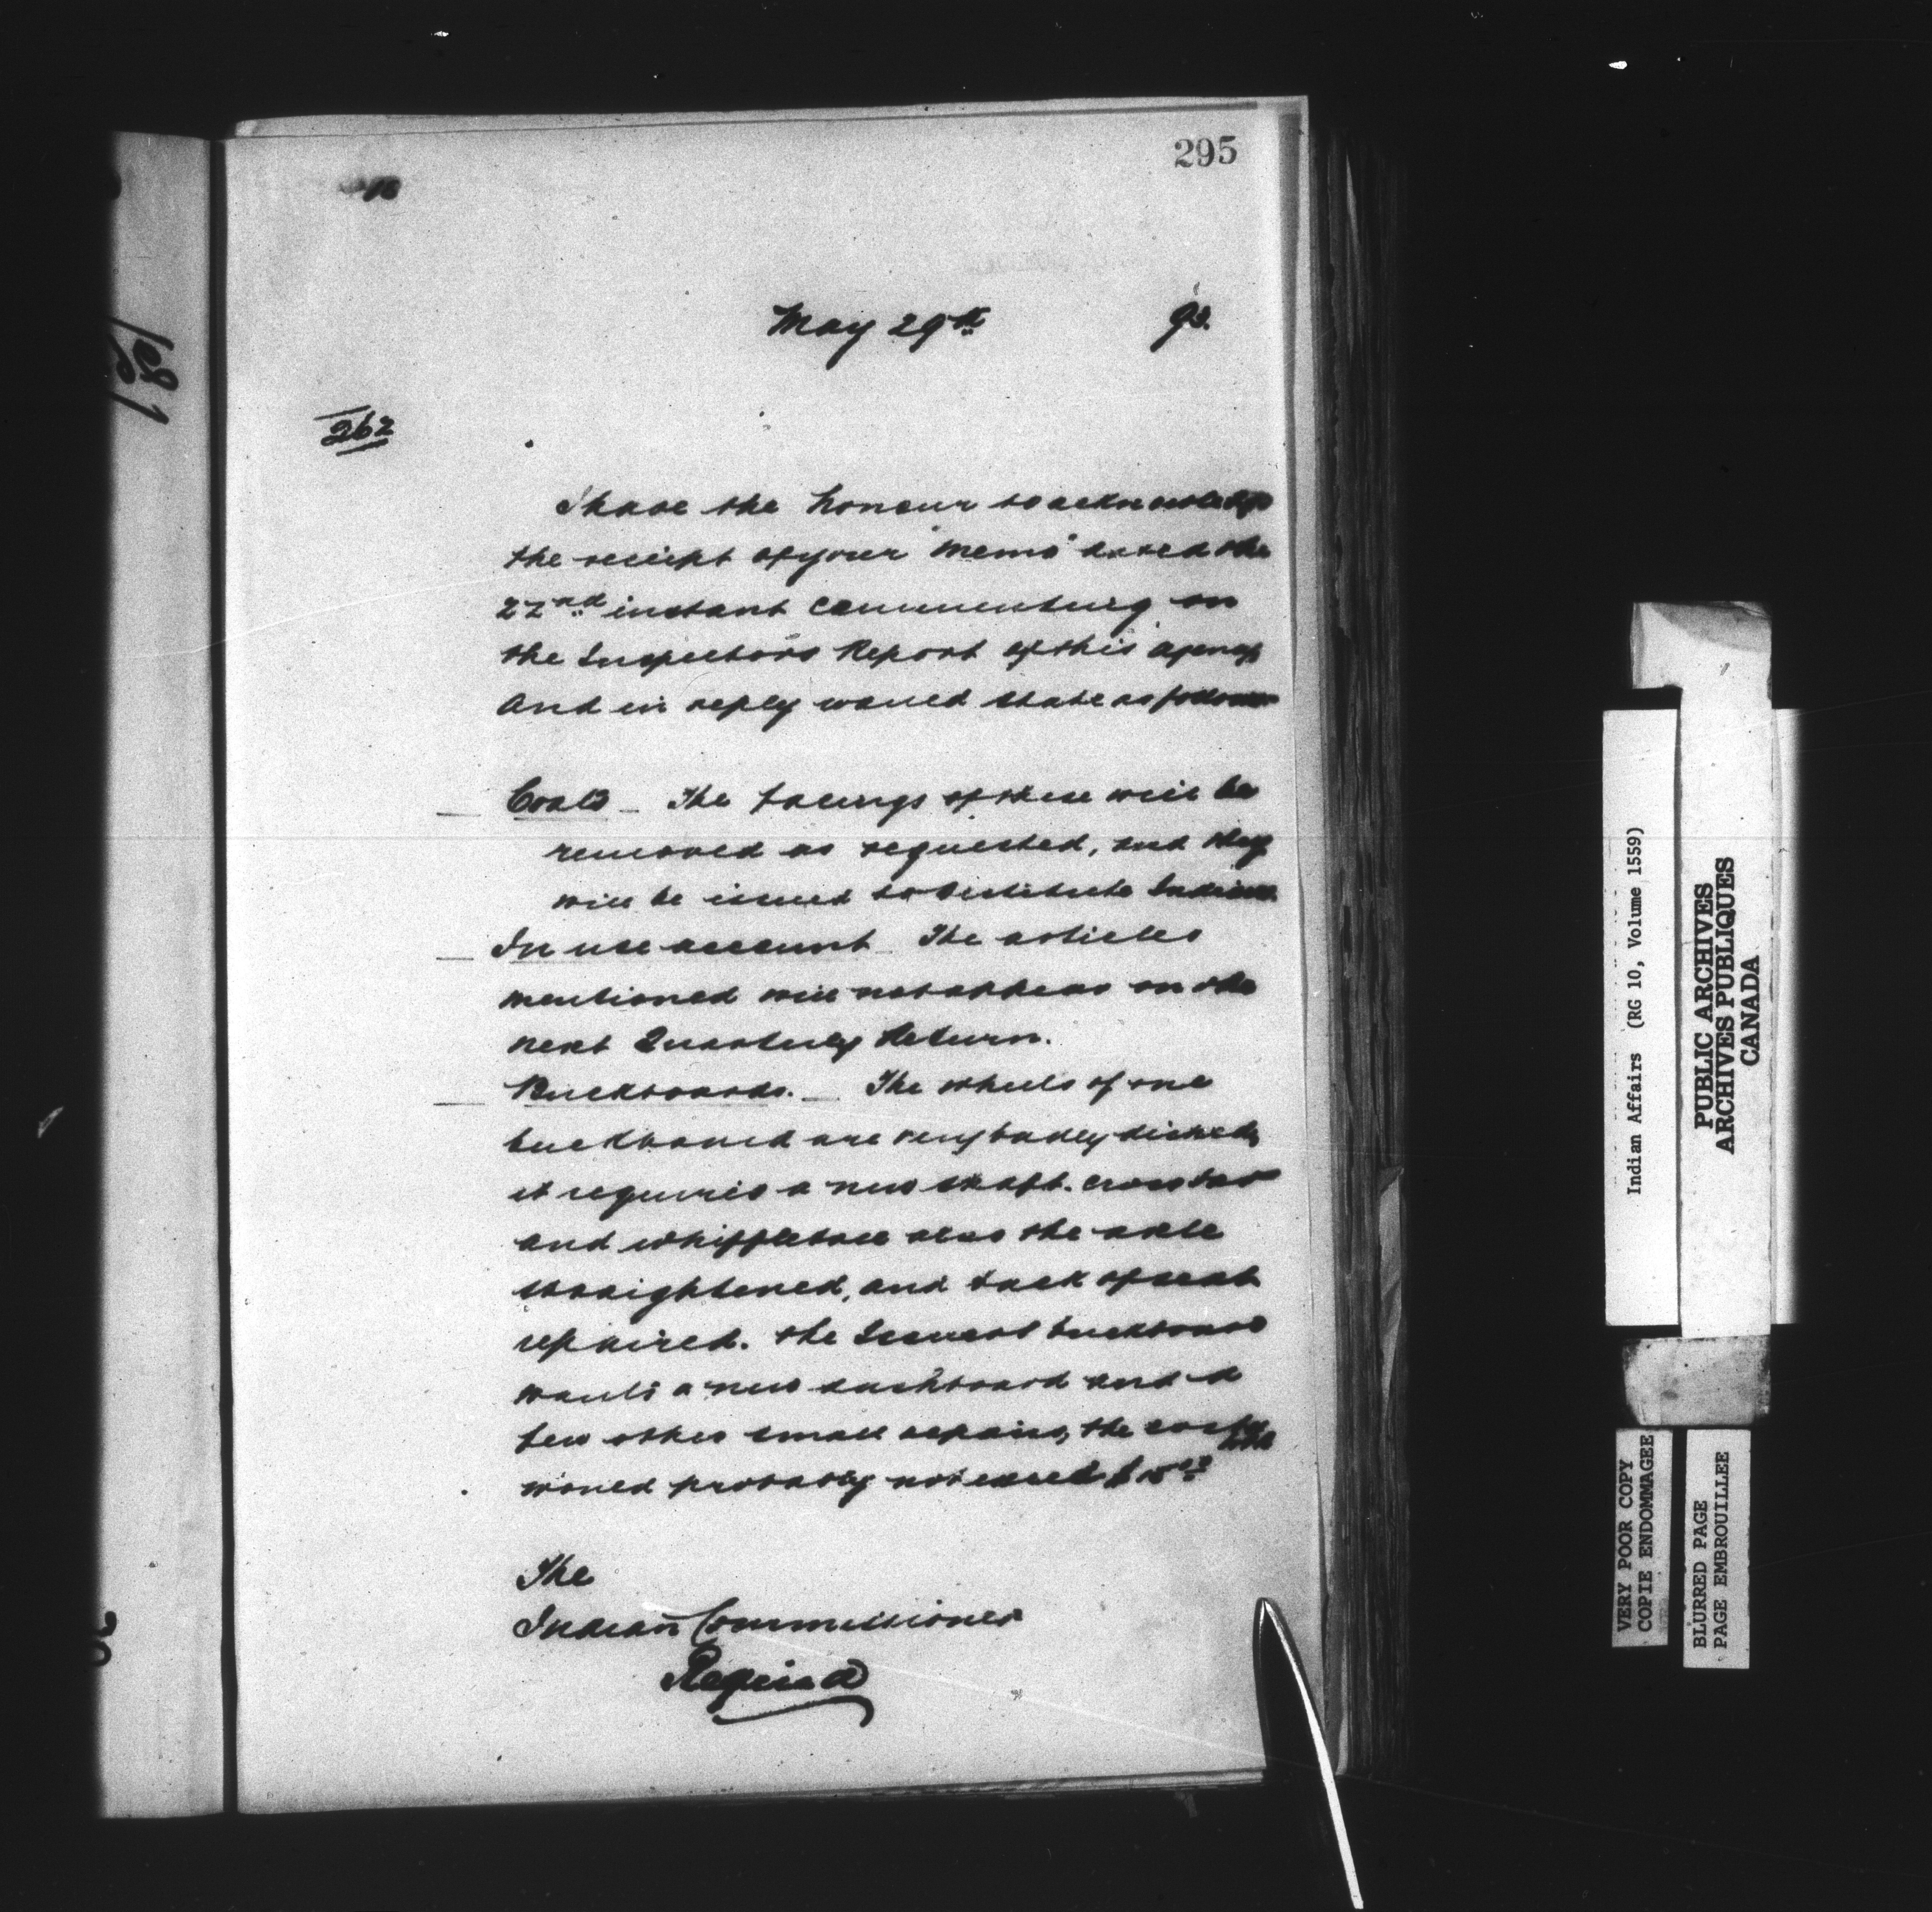 295
May 29th 93.
262
I have the honour to acknowledge
the reciept of your "memo" dated the
22nd instant commenting on
the Inspectors Report of this agency
and in reply would state as follows
Coats _ The facings of these will be
removed as requested, and they
will be issued to destitute Indians.
In use account _ The articles
mentioned will not appear on the
next Quarterly Return.
Buckboards. _ The wheels of one
buckboard are very badly dished,
it requires a new shaft. cross bar
and whippletree also the axle
straightened, and back of seat
repaired. The buckboard
wants a new dashboard and a
few other small repairs, the cost of
would probably not exceed $15.00
The
Indian Commissioner
Regina
Indian Affairs (RG 10, Volume 1559)
PUBLIC ARCHIVES
ARCHIVES PUBLIQUES
CANADA
VERY POOR COPY
COPIE ENDOMMAGEE
BLURRED PAGE
PAGE EMBROUILLEE